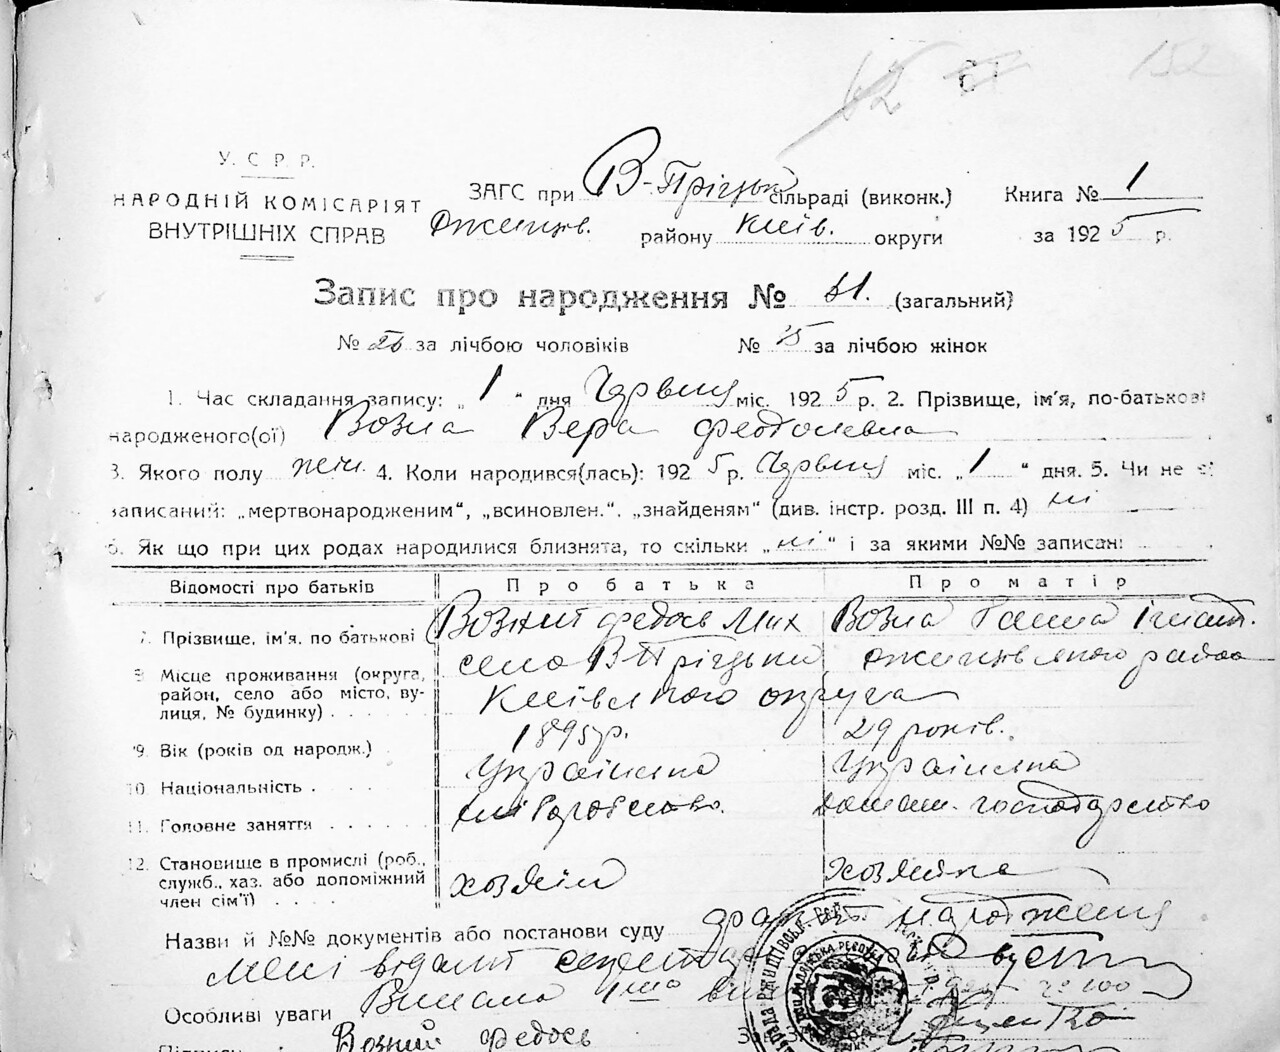 152
У. С. Р. Р.
НАРОДНІЙ КОМІСАРІЯТ
ВНУТРІШНІХ СПРАВ
ЗАГС при В-Пріцьк сільраді (виконк.)
Книга № 1
району Київ. округи
за 1925 р.
Запис про народження № 51. (загальний)
№ 26 за лічбою чоловіків № 25 за лічбою жінок
1. Час складання запису: „ 1 “ дня Червня міс. 1925 р. 2. Прізвище, ім'я, по-батькові
народженого(ої) Возна Вера Феодосевна
3. Якого полу жін. 4. Коли народився(лась): 1925 р. Червня міс. „ 1 “ дня. 5. Чи не є
записаний: „мертвонародженим“, „всиновлен.“, „знайденям“ (див. інстр. розд. III п. 4) ні
6. Як що при цих родах народилися близнята, то скільки „ ні “ і за якими №№ записані
Відомості про батьків Про батька Про матір
7. Прізвище, ім'я, по батькові Возний Федось Мих Возна Ганна Ігнат.
8. Місце проживання (округа, район, село або місто, вулиця, № будинку) село В Пріцьки района
Київського округа
9. Вік (років од народж.) 1895 р. 29 років.
10. Національність Українець Українка
11. Головне заняття хліборобство. домашн. господарство
12. Становище в промислі (роб., служб., хаз. або допоміжний член сім'ї) хозяїн хозяйка
Назви й №№ документів або постанови суду народження
Особливі уваги
Возний Федось